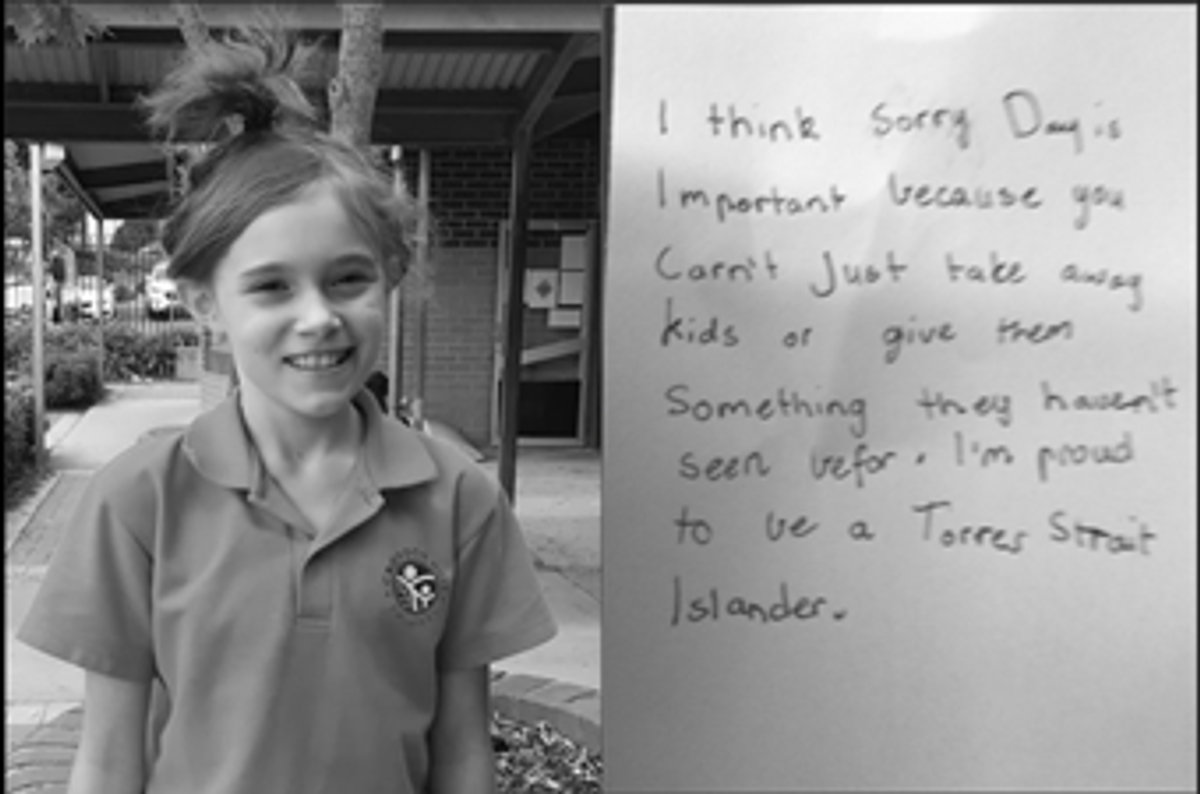 I think Sorry Day is
Important because you
Carn't Just take away
kids or give them
Something they haven't
seen befor. I'm proud
to be a Torres Strait
Islander.